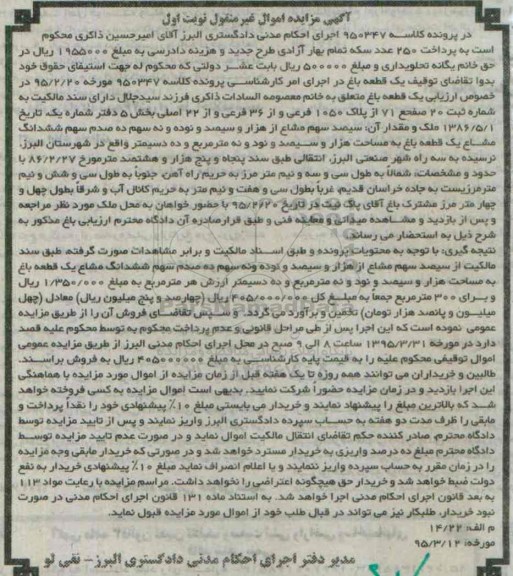 آگهی مزایده اموال غیرمنقول نوبت اول
در پرونده کلاسه ۹۵۰۳۴۷ اجرای احکام مدنی دادگستری البرز آقای امیرحسین ذاکری محکوم
است به پرداخت ۲۵۰ عدد سکه تمام بهار آزادی طرح جدید و هزینه دادرسی به مبلغ ۱۹۵۵۰۰۰ ریال در
حق خانم یگانه تحلویداری و مبلغ ۵۰۰۰۰۰ ریال بابت عشر دولتی که محکوم له جهت استیفای حقوق خود
بدوا تقاضای توقیف یک قطعه باغ در اجرای امر کارشناسی پرونده کلاسه ۹۵۰۳۴۷ مورخه ۹۵/۲/۲۰ در
خصوص ارزیابی یک قطعه باغ متعلق به خانم معصومه السادات ذاکری فرزند سیدجلال دارای سند مالکیت به
شماره ثبت ۲۰ صفحع ۷۱ از پلاک ۱۰۵۰ فرعی و از ۳۶ فرعی و از ۲۲ اصلی بخش ۵ دفتر شماره یک، تاریخ
۱۳۸۶/۵/۱ ملک و مقدار آن: سیصد سهم مشاع از هزار و سیصد و نوده و نه سهم ده صدم سهم ششدانگ
مشاع یک قطعه باغ به مساحت هزار و سیصد و نود و نه مترمربع و ده دسیمتر واقع در شهرستان البرز،
نرسیده به سه راه شهر صنعتی البرز، انتقالی طبق سند پنجاه و پنج هزار و هشتصد مترمورخ ۸۶/۲/۲۷ با
حدود و مشخصات: شمالاً به طول سی و سه و نیم متر مرز به حریم راه آهن، جنوباً به طول سی و شش و نیم
مترمرزیست به جاده خراسان قدیم، غرباً بطول سی و هفت و نیم متر به حریم کانال آب و شرقاً بطول چهل و
چهار متر مرز مشترک باغ آقای پلاک نیت در تاریخ ۹۵/۲/۲۰ با حضور خواهان به محل ملک مورد نظر مراجعه
و پس از بازدید و مشاهده میدانی و معاینه فنی و طبق قرارصادره آن دادگاه محترم ارزیابی باغ مذکور به
شرح ذیل به استحضار می رساند.
نتیجه گیری: با توجه به محتویات پرونده و طبق اسناد مالکیت و برابر مشاهدات صورت گرفته، طبق سند
مالکیت از سیصد سهم مشاع از هزار و سیصد و نوده ونه سهم ده صدم سهم ششدانگ مشاع یک قطعه باغ
به مساحت هزار و سیصد و نود و نه مترمربع و ده دسیمتر ارزش هر مترمربع به مبلغ ۱/۳۵۰/۰۰۰ ریال
و برای ۳۰۰ مترمربع جمعاً به مبلغ کل ۴۰۵/۰۰۰/۰۰۰ ریال (چهارصد و پنج میلیون ریال) معادل (چهل
میلیون و پانصد هزار تومان) تخمین و برآورد می گردد. و سپس تقاضای فروش آن را از طریق مزایده
عمومی نموده است که این اجرا پس از طی مراحل قانونی و عدم پرداخت محکوم به توسط محکوم علیه قصد
دارد در مورخه ۱۳۹۵/۳/۳۱ ساعت ۸ الی ۹ صبح در محل اجرای احکام مدنی البرز از طریق مزایده عمومی
اموال توقیفی محکوم علیه را به قیمت پایه کارشناسی به مبلغ ۴۰۵۰۰۰۰۰۰ ریال به فروش برساند.
طالبین و خریداران می توانند همه روزه تا یک هفته قبل از زمان مزایده از اموال مورد مزایده با هماهنگی
این اجرا بازدید و در زمان مزایده حضوراً شرکت نمایند. بدیهی است اموال مزایده به کسی فروخته خواهد
شد که بالاترین مبلغ را پیشنهاد نمایند و خریدار می بایستی مبلغ ۱۰٪ پیشنهادی خود را نقداً پرداخت و
مابقی را ظرف مدت دو هفته به حساب سپرده دادگستری البرز واریز نمایند و پس از تایید مزایده توسط
دادگاه محترم، صادر کننده حکم تقاضای انتقال مالکیت اموال نماید و در صورت عدم تایید مزایده توسط
دادگاه محترم مبلغ ده درصد واریزی به خریدار مسترد خواهد شد و در صورتی که خریدار مابقی وجه مزایده
را در زمان مقرر به حساب سپرده واریز ننمایند و یا اعلام انصراف نماید مبلغ ۱۰٪ پیشنهادی خریدار به نفع
دولت ضبط خواهد شد و خریدار حق هیچگونه اعتراضی را نخواهد داشت. مراسم مزایده با رعایت مواد ۱۱۳
به بعد قانون اجرای احکام مدنی اجرا خواهد شد. به استناد ماده ۱۳۱ قانون اجرای احکام مدنی در صورت
نبود خریدار، طلبکار نیز می تواند در قبال طلب خود از اموال مورد مزایده قبول نماید.
م الف: ۱۴/۲۲
مورخه: ۹۵/۳/۱۲
مدیر دفتر اجرای احکام مدنی دادگستری البرز - نقی لو